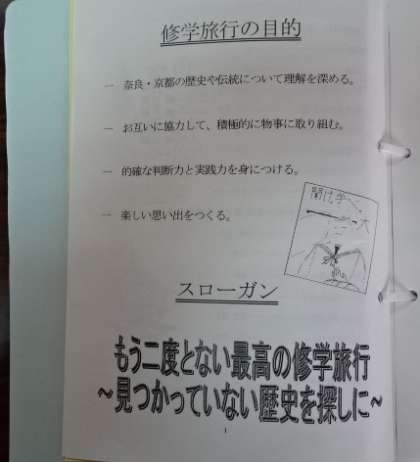 修学旅行の目的
一 奈良・京都の歴史や伝統について理解を深める。
一 お互いに協力して、積極的に物事に取り組む。
一 的確な判断力と実践力を身につける。
一 楽しい思い出をつくる。
スローガン
もう二度とない最高の修学旅行
~見つかっていない歴史を探しに~
1